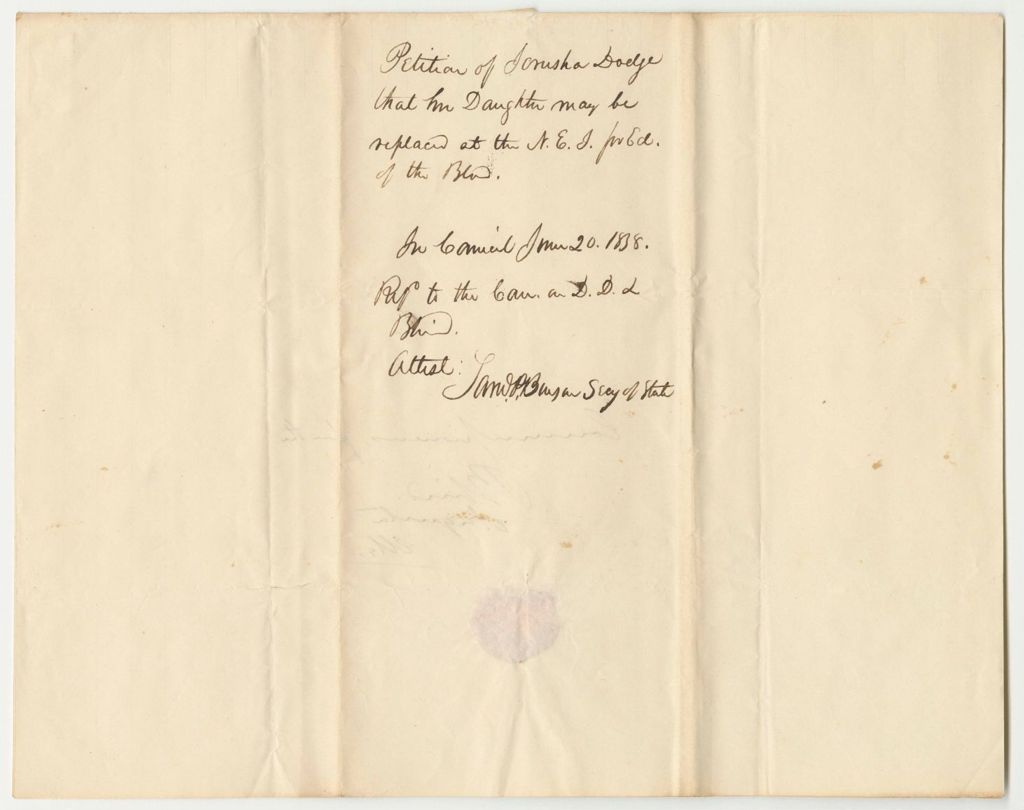 Petition of Jerusha Dodge
that her Daughter may be
replaced at the N. E. I. for Ed.
of the Blind.
In Council June 20. 1838.
Refd to the Com. on D. D. &
Blind.
Attest:
Saml P. Benson Secy of State
Augusta
Me.